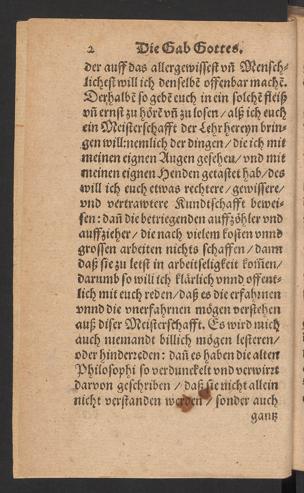 2 Die Gab Gottes.
der auff das allergewissest vñ Mensch-
lichest will ich denselbẽ offenbar machẽ.
Derhalbẽ so gebẽ euch in ein solchẽ fleiß
vñ ernst zu hörẽ vñ zu losen / alß ich euch
ein Meisterschafft der Lehr hereyn brin-
gen will: nemlich der dingen / die ich mit
meinen eignen Augen gesehen / vnd mit
meinen eignen Henden getastet hab / des
will ich euch etwas rechtere / gewissere /
vnd vertrawtere Kundtschafft bewei-
sen: dañ die betriegenden auffzöhler vnd
auffzieher / die nach vielem kosten vnnd
grossen arbeiten nichts schaffen / dann
daß sie zu letst in arbeitseligkeit kom̃en /
darumb so will ich klärlich vnnd offent-
lich mit euch reden / daß es die erfahrnen
vnnd die vnerfahrnen mögen verstehen
auß diser Meisterschafft. Es wird mich
auch niemandt billich mögen lesteren /
oder hinderreden: dañ es haben die alten
Philosophi so verdunckelt vnd verwirrt
darvon geschriben / daß sie nicht allein
nicht verstanden werden / sonder auch
gantz